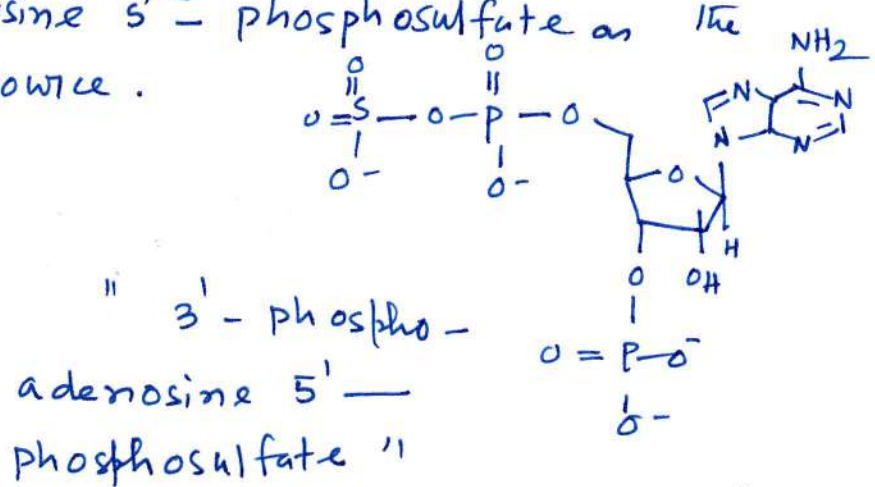 sine 5' - phosphosulfate as the
owrce.
O
||
O=S-O-P-O
O
||
O-
O-
NH2
N
N
N
N
O
H
O OH
O=P-O-
O-
" 3' - phospho-
adenosine 5' —
phosphosulfate "